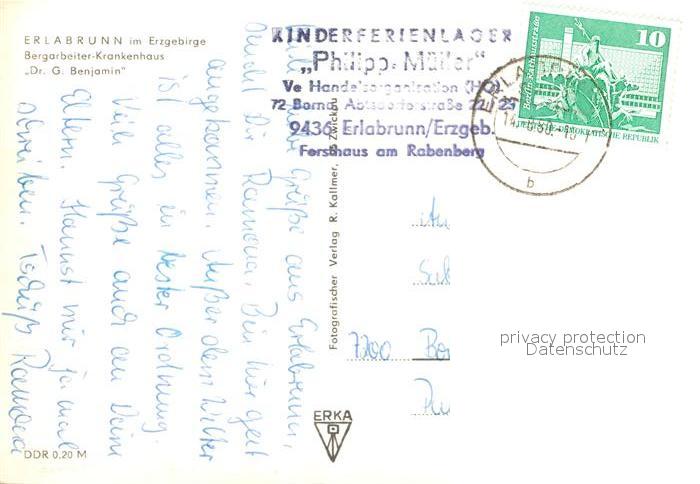 ERLABRUNN im Erzgebirge
Bergarbeiter-Krankenhaus
„Dr. G. Benjamin"
KINDERFERIENLAGER
„Philipp-Müller"
Ve Handelsorganisation (HO)
72 Borna, Abtsdorferstraße 22/25
9436 Erlabrunn/Erzgeb.
Forsthaus am Rabenberg
10
Berlin, Rathausstraße
DEUTSCHE DEMOKRATISCHE REPUBLIK
b
Grüße aus Erlabrunn,
Dir Ramona. Bin hier gut
angekommen. Außer dem Wetter
ist alles in bester Ordnung.
Viele Grüße auch an Deine
Eltern. Kannst mir ja mal
schreiben. Tschüß Ramona
Fotografischer Verlag R. Kallmer, Zwickau
7200 Bor
privacy protection
Datenschutz
ERKA
DDR 0,20 M